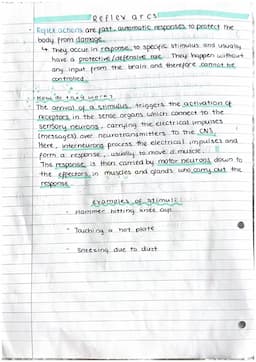 Reflex arcs
· Reflex actions are fast, automatic responses to protect the
body from damage.
↳ They occur in response to specific stimulus and usually
have a protective/defensive role. They happen without
any input from the brain and therefore cannot be
controlled.
· How do they work?
The arrival of a stimulus triggers the activation of
receptors in the sense organs which connect to the
sensory neurons, carrying the electrical impulses
(messages) over neurotransmitters to the CNS.
Here, interneurons process the electrical impulses and
form a response, usually to move a muscle.
The response is then carried by motor neurons down to
the effectors in muscles and glands who carry out the
response.
Examples of stimuli:
· Hammer hitting knee cap
· Touching a hot plate
· Sneezing due to dust